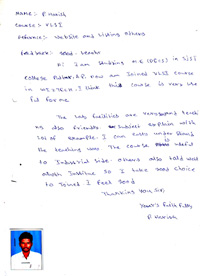 NAME:- P Harish
Course:- VLSI
Reference:- Website and listing others
Feedback:- Good. teacher
I am studying M.E (DE&CS) in SISI
College Puttur. A.P. now am Joined VLSI course
in this course is very use
ful for me
The lab facilities are very good
also friendly subject explain with
lot of example. I can easily under stand
the teaching was The course useful
to Industrial side. others also told well
about Institute so I take good choice
to Joined I feel good
Thanking you sir,
Your's Faith Fully
P Harish